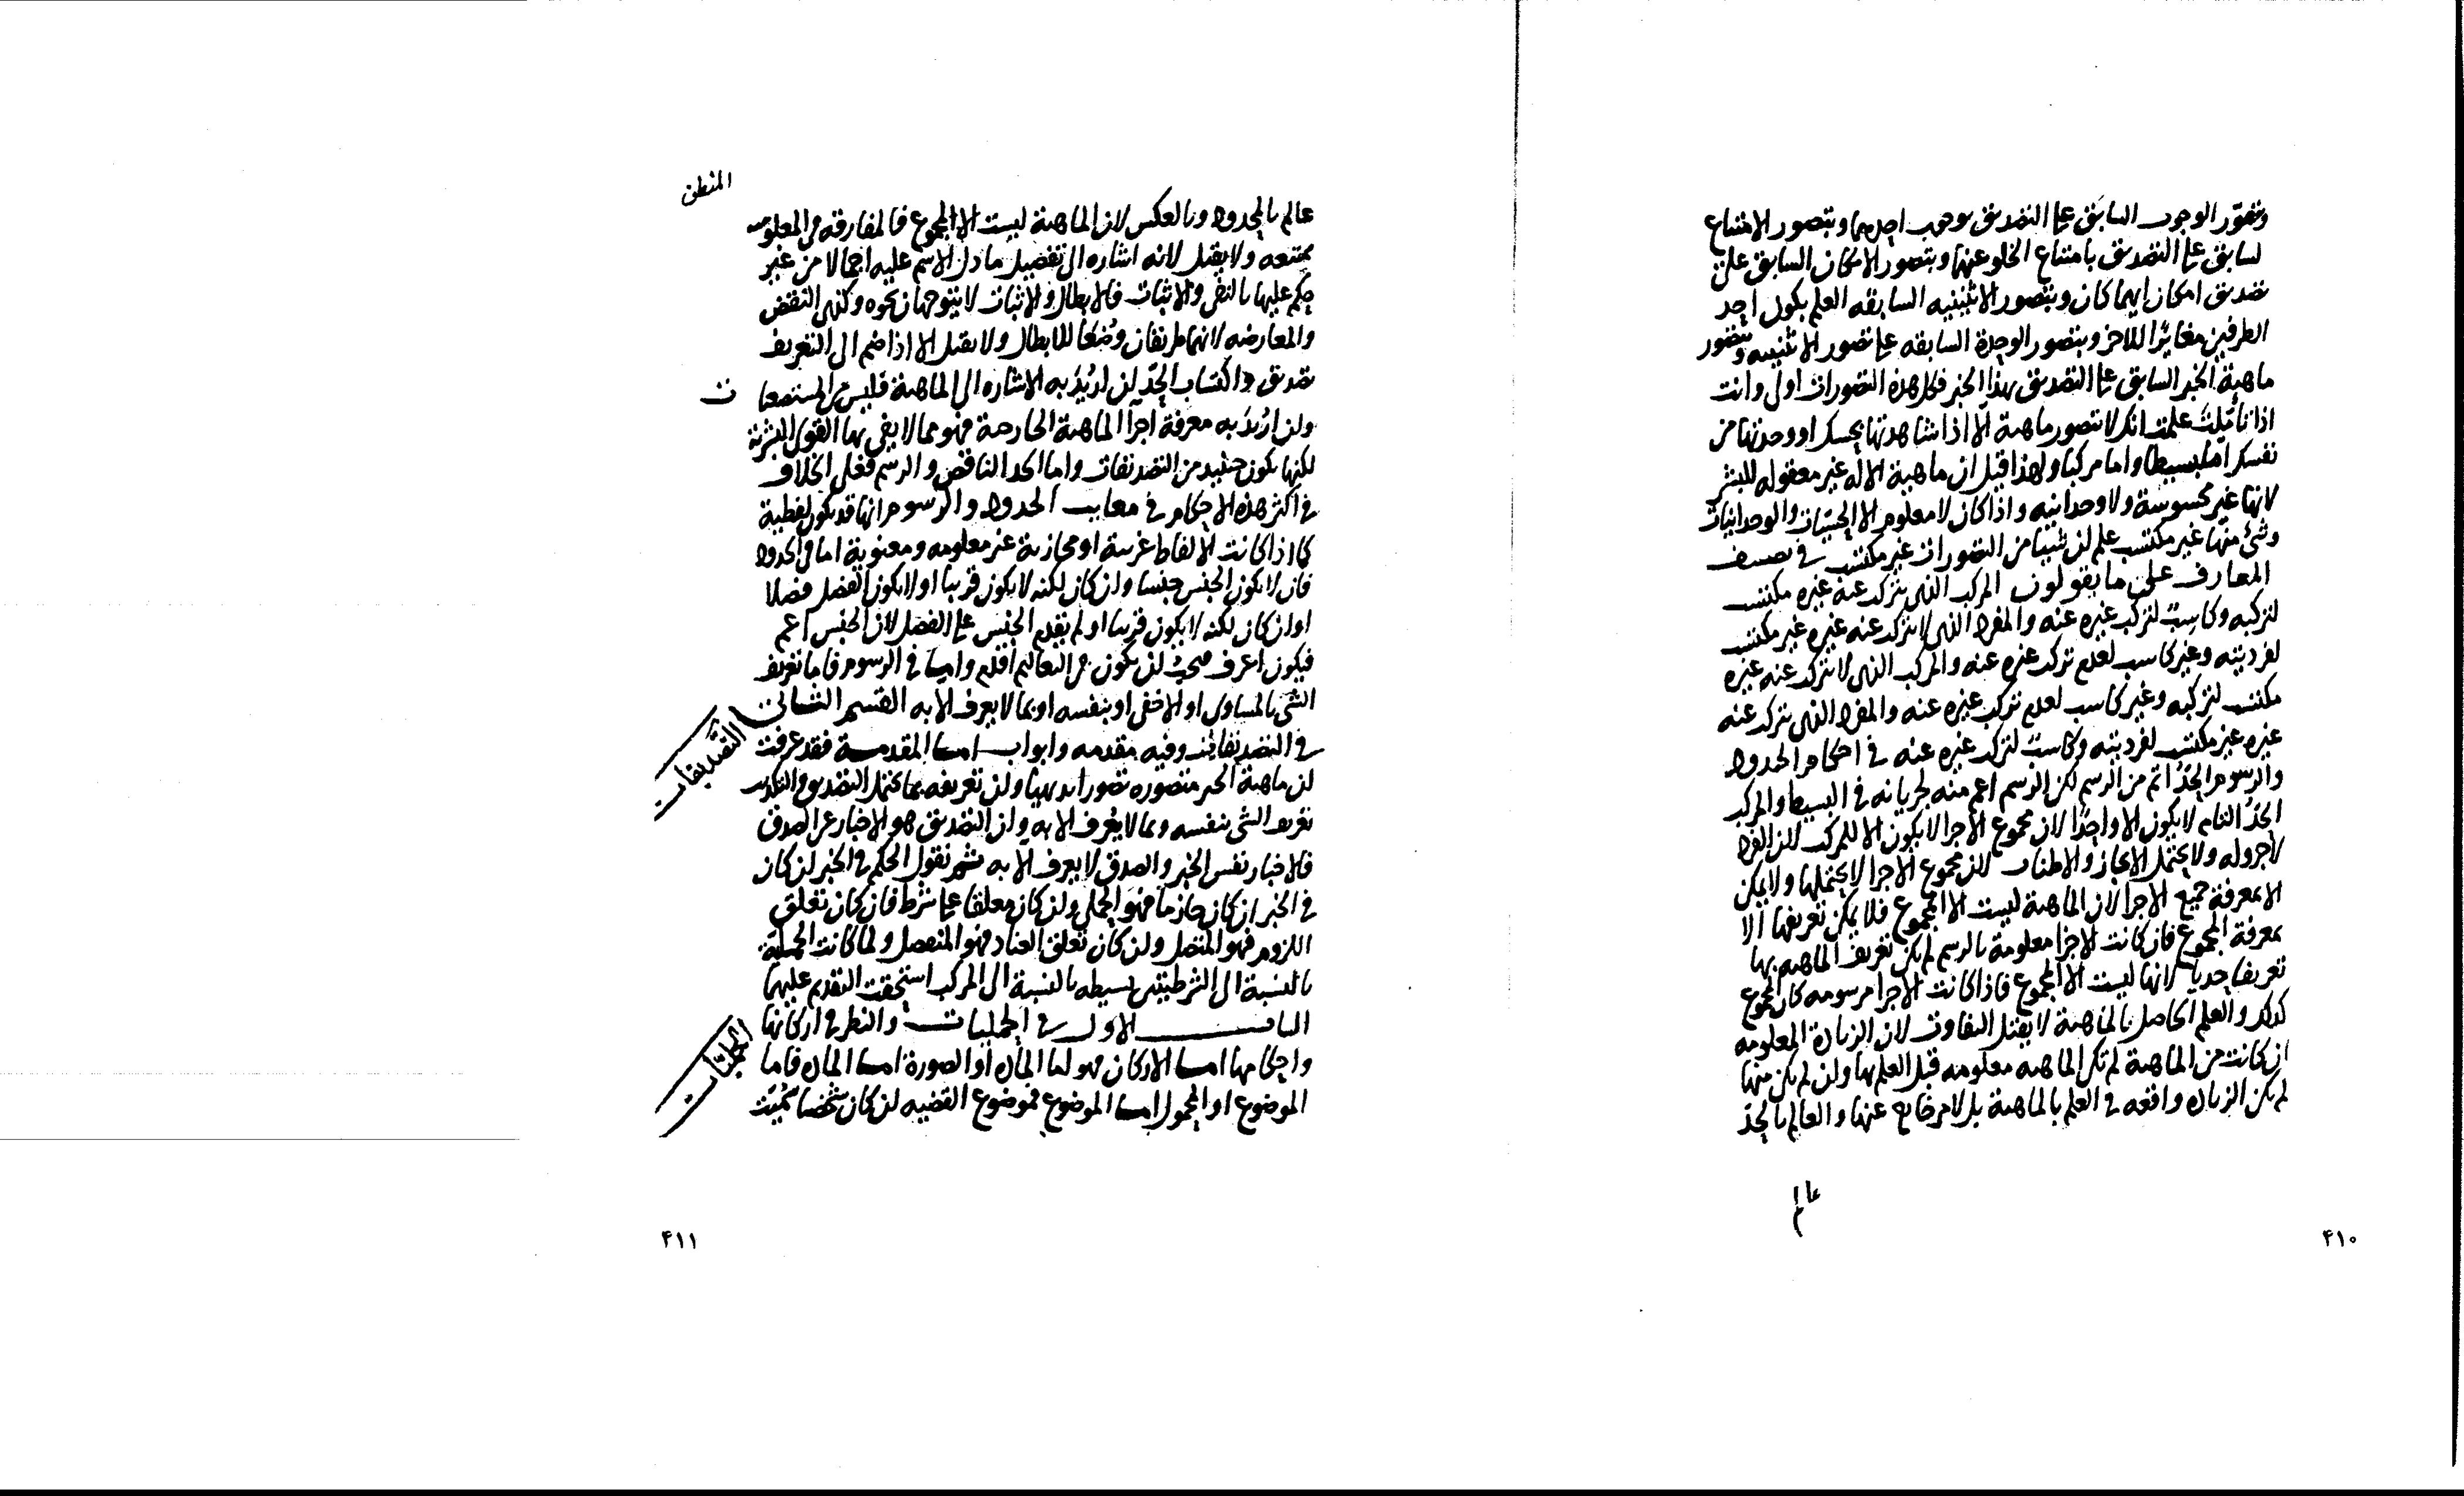 وبتصور الوجوب السابق على التصديق بوجوب احدهما وبتصور الامتناع
لسابق على التصديق بامتناع الخلو عنهما وبتصور الامكان السابق على
تصديق امكان ايهما كان وبتصور الاثنينيه السابقه العلم بكون احد
الطرفين مغايرا للاخر وبتصور الوحدة السابقه على تصور الاثنينيه وبتصور
ماهية الخبر السابق على التصديق بهذا الخبر فكل هذه التصورات اولى وانت
اذا تأملت علمت انك لا تتصور ماهية الا اذا شاهدتها بحسك او وجدتها من
نفسك اما بسيطا واما مركبا ولهذا قيل ان ماهية الاله غير معقوله للبشر
لانها غير محسوسة ولا وجدانيه واذا كان لا معلوم الا الحسيات والوجدانيات
وشئ منها غير مكتسب علم ان شيئا من التصورات غير مكتسب في
المعارف على ما يقولون المركب الذي يتركب عنه غيره مكتسب
لتركبه وكاسب لتركب غيره عنه والمفرد الذي لا يتركب عنه غيره غير مكتسب
لفرديته وغير كاسب لعدم تركب غيره عنه والمركب الذي لا يتركب عنه غيره
مكتسب لتركبه وغير كاسب لعدم تركب غيره عنه والمفرد الذي يتركب عنه
غيره غير مكتسب لفرديته وكاسب لتركب غيره عنه في احكام الحدود
والرسوم الحد اتم من الرسم لكن الرسم اعم منه لجريانه في البسيط والمركب
الحد التام لا يكون الا واحدا لان مجموع الاجزا لا يكون الا للمركب لان الفرد
لا جزو له ولا يحتمل الايجاز والاطناب لان مجموع الاجزا لا يحتملها ولا يمكن
الا بمعرفة جميع الاجزا لان الماهية ليست الا المجموع فلا يمكن تعريفها الا
بمعرفة المجموع فان كانت الاجزا معلومة بالرسم لم يكن تعريف الماهيه بها
تعريفا حديا لانها ليست الا المجموع فاذا كانت الاجزا مرسومه كان المجموع
كذلك والعلم الحاصل بالماهية لا يقبل التفاوت لان الزيادة المعلومه
ان كانت من الماهية لم تكن الماهيه معلومه قبل العلم بها وان لم يكن منها
لم يكن الزياده واقعه في العلم بالماهية بل لامر خارج عنها والعالم بالحد
عا
م
۴۱۰
المنطق
عالم بالمحدود وبالعكس لان الماهية ليست الا المجموع فالمفارقه في المعلوميه
ممتنعه ولا يقبل لانه اشاره الى تفصيل ما دل الاسم عليه اجمالا من غير
حكم عليها بالنفي والاثبات فالابطال والاثبات لا يتوجهان نحوه وكذى النقض
والمعارضه لانهما طريقان وضعا للابطال ولا يقبل الا اذا ضم الى التعريف
تصديق واكتساب الحد ان اريد به الاشاره الى الماهية فليس من المستصعبات
وان اريد به معرفة اجزا الماهية الخارجة فهو مما لا يفي بها القوى البشرية
لكنها يكون حينيد من التصديقات واما الحد الناقص والرسم فعلى الخلاف
في اكثر هذه الاحكام في معايب الحدود والرسوم انها قد تكون لفظية
كما اذا كانت الالفاظ غريبة او مجازية غير معلومه ومعنوية اما في الحدود
فان لا يكون الجنس جنسا وان كان لكنه لا يكون قريبا او لا يكون الفصل فصلا
او ان كان لكنه لا يكون قريبا او لم يقدم الجنس على الفصل لان الجنس اعم
فيكون اعرف فيجب ان يكون في التعاليم اقدم واما في الرسوم فاما تعريف
الشي بالمساوي او الاخفى او بنفسه او بما لا يعرف الا به القسم الثاني
التصديقات
في التصديقات وفيه مقدمه وابواب اما المقدمة فقد عرفت
ان ماهية الخبر متصوره تصورا بديهيا وان تعريفه بما يحتمل التصديق والتكذيب
تعريف الشي بنفسه وبما لا يعرف الا به وان التصديق هو الاخبار عن الصدق
فالاخبار نفس الخبر والصدق لا يعرف الا به ثم نقول الحكم في الخبر ان كان
في الخبر ان كان جازما فهو الحملي وان كان معلقا على شرط فان كان تعلق
اللزوم فهو المتصل وان كان تعلق العناد فهو المنفصل ولما كانت الحملية
بالنسبة الى الشرطيتين بسيطه بالنسبة الى المركب استحقت التقديم عليهما
الباب الاول في الحمليات والنظر في اركانها
الحمليات
واحكامها اما الاركان فهو اما المادة او الصورة اما المادة فاما
الموضوع او المحمول اما الموضوع فموضوع القضيه ان كان شخصا سميت
۴۱۱